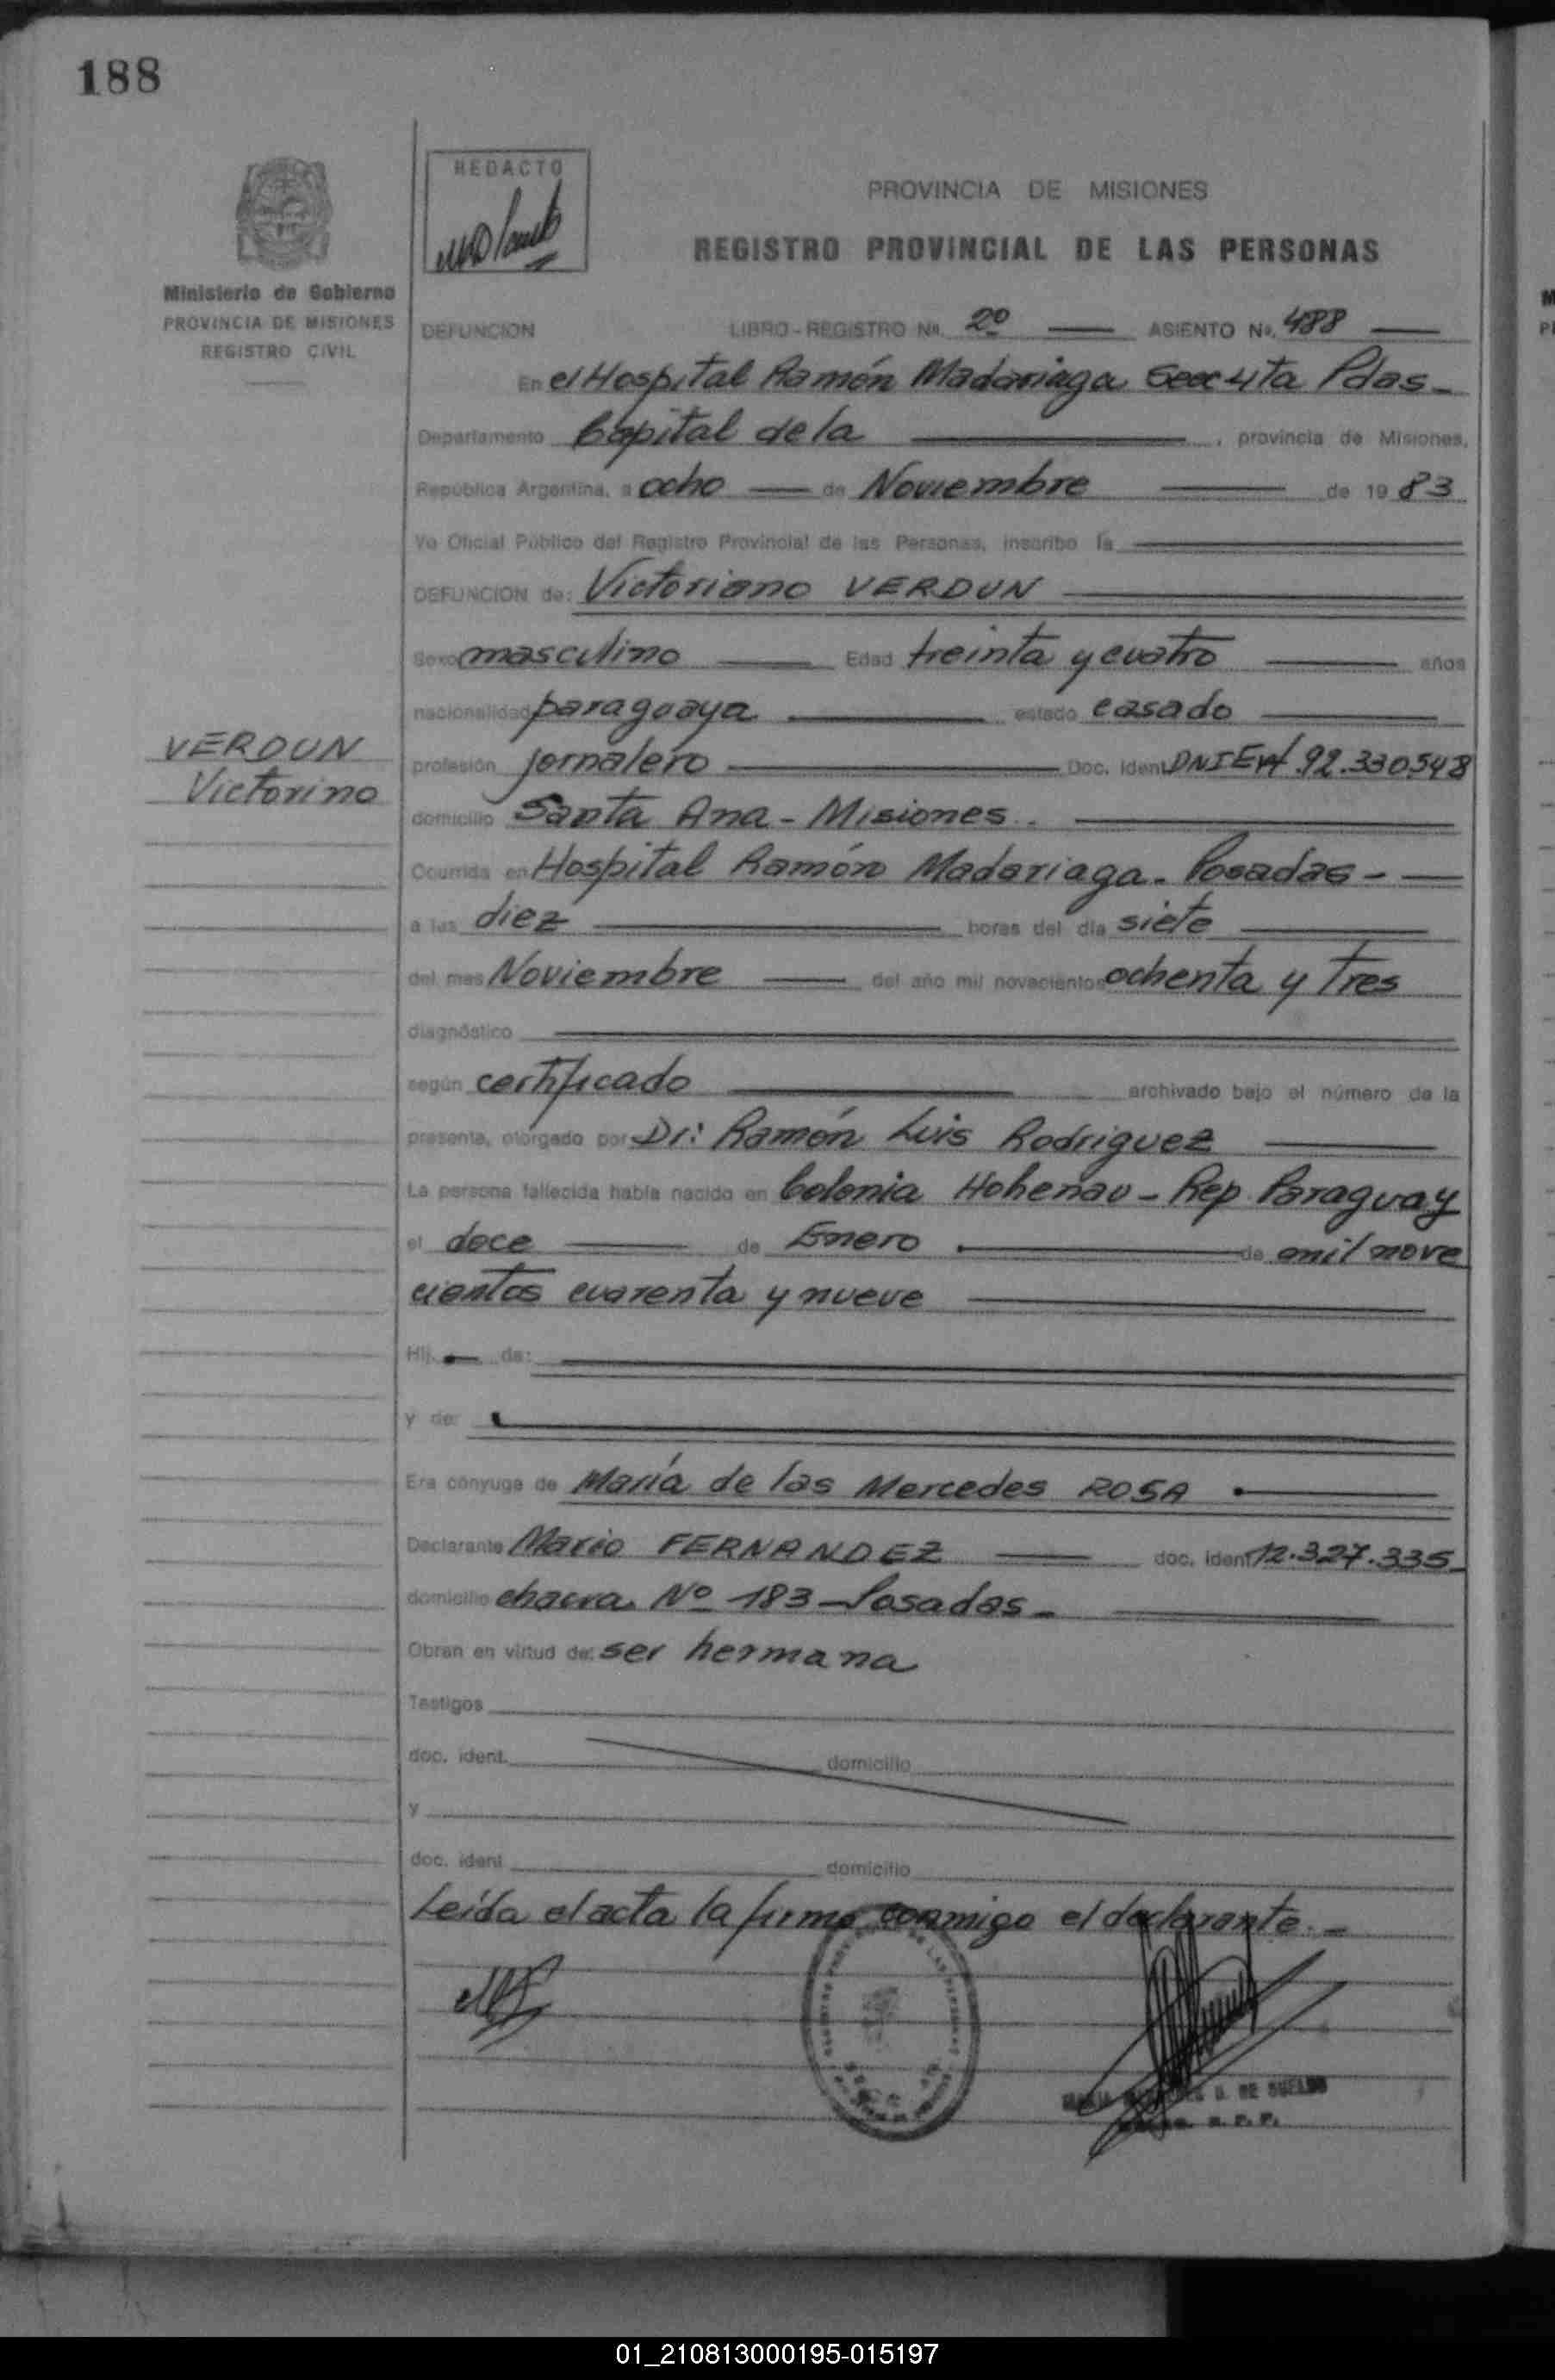 188
REDACTO
PROVINCIA DE MISIONES
REGISTRO PROVINCIAL DE LAS PERSONAS
Ministerio de Gobierno
PROVINCIA DE MISIONES
REGISTRO CIVIL
DEFUNCION LIBRO-REGISTRO No. 2º ASIENTO No. 488
En el Hospital Ramón Madariaga Secc 4ta Pdas -
Departamento Capital de la , provincia de Misiones,
República Argentina, a ocho de Noviembre de 1983
Yo Oficial Público del Registro Provincial de las Personas, inscribo la
DEFUNCION de: Victoriano VERDUN
Sexo masculino Edad treinta y cuatro años
nacionalidad paraguaya estado casado
VERDUN
Victorino
profesión jornalero Doc. Ident. DNIEN 92.330548
domicilio Santa Ana - Misiones.
Ocurrida en Hospital Ramón Madariaga - Posadas -
a las diez horas del día siete
del mes Noviembre del año mil novecientos ochenta y Tres
diagnóstico
según certificado archivado bajo el número de la
presente, otorgado por Dr: Ramón Luis Rodriguez
La persona fallecida había nacido en Colonia Hohenau - Rep. Paraguay
el doce de Enero de mil nove
cientos cuarenta y nueve
Hij. de:
y de:
Era cónyuge de María de las Mercedes ROSA
Declarante Mario FERNANDEZ doc. ident 12.327.335
domicilio chacra Nº 183 - Posadas -
Obran en virtud de: ser hermana
Testigos
doc. ident. domicilio
y
doc. ident domicilio
Leída el acta la firma conmigo el declarante. -
DE SUELDO
01_210813000195-015197